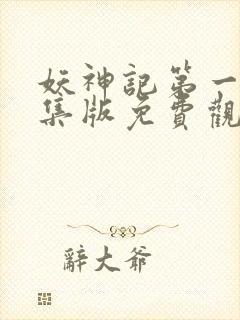 妖神記第一
集版免費觀
辭大爺